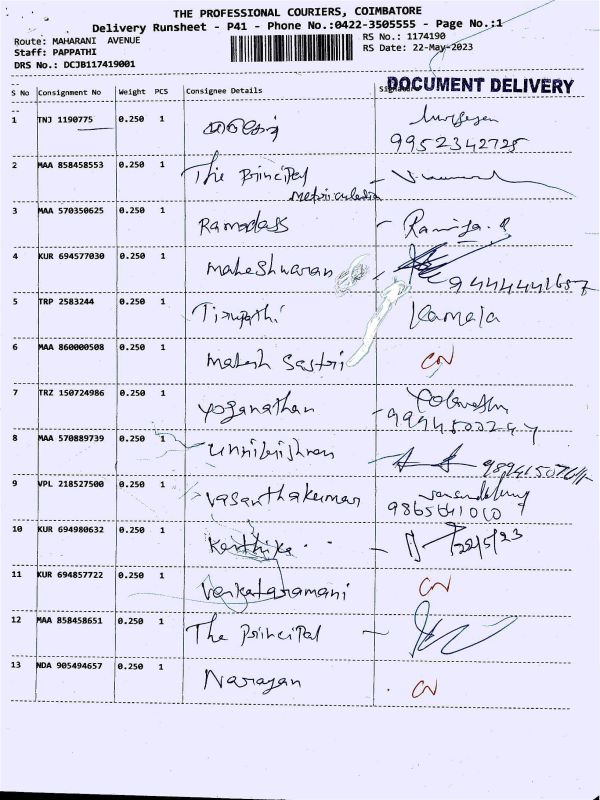 THE PROFESSIONAL COURIERS, COIMBATORE
Delivery Runsheet - P41 - Phone No.:0422-3505555 - Page No.:1
Route: MAHARANI AVENUE RS No.: 1174190
Staff: PAPPATHI RS Date: 22-May-2023
DRS No.: DCJB117419001
DOCUMENT DELIVERY
S No Consignment No Weight PCS Consignee Details
1 TNJ 1190775 0.250 1
9952342725
2 MAA 858458553 0.250 1 The Principal
3 MAA 570350625 0.250 1 Ramadass
4 KUR 694577030 0.250 1 Maheshwaran
5 TRP 2583244 0.250 1 Tirupathi Kamala
6 MAA 860000508 0.250 1 Mahesh Sastri CN
7 TRZ 150724986 0.250 1 Yoganathan
8 MAA 570889739 0.250 1 Unnikrishnan
9 VPL 218527500 0.250 1 Vasanthakumar
10 KUR 694980632 0.250 1 Karthika 22/5/23
11 KUR 694857722 0.250 1 Venkataramani CN
12 MAA 858458651 0.250 1 The Principal
13 NDA 905494657 0.250 1 Narayan CN